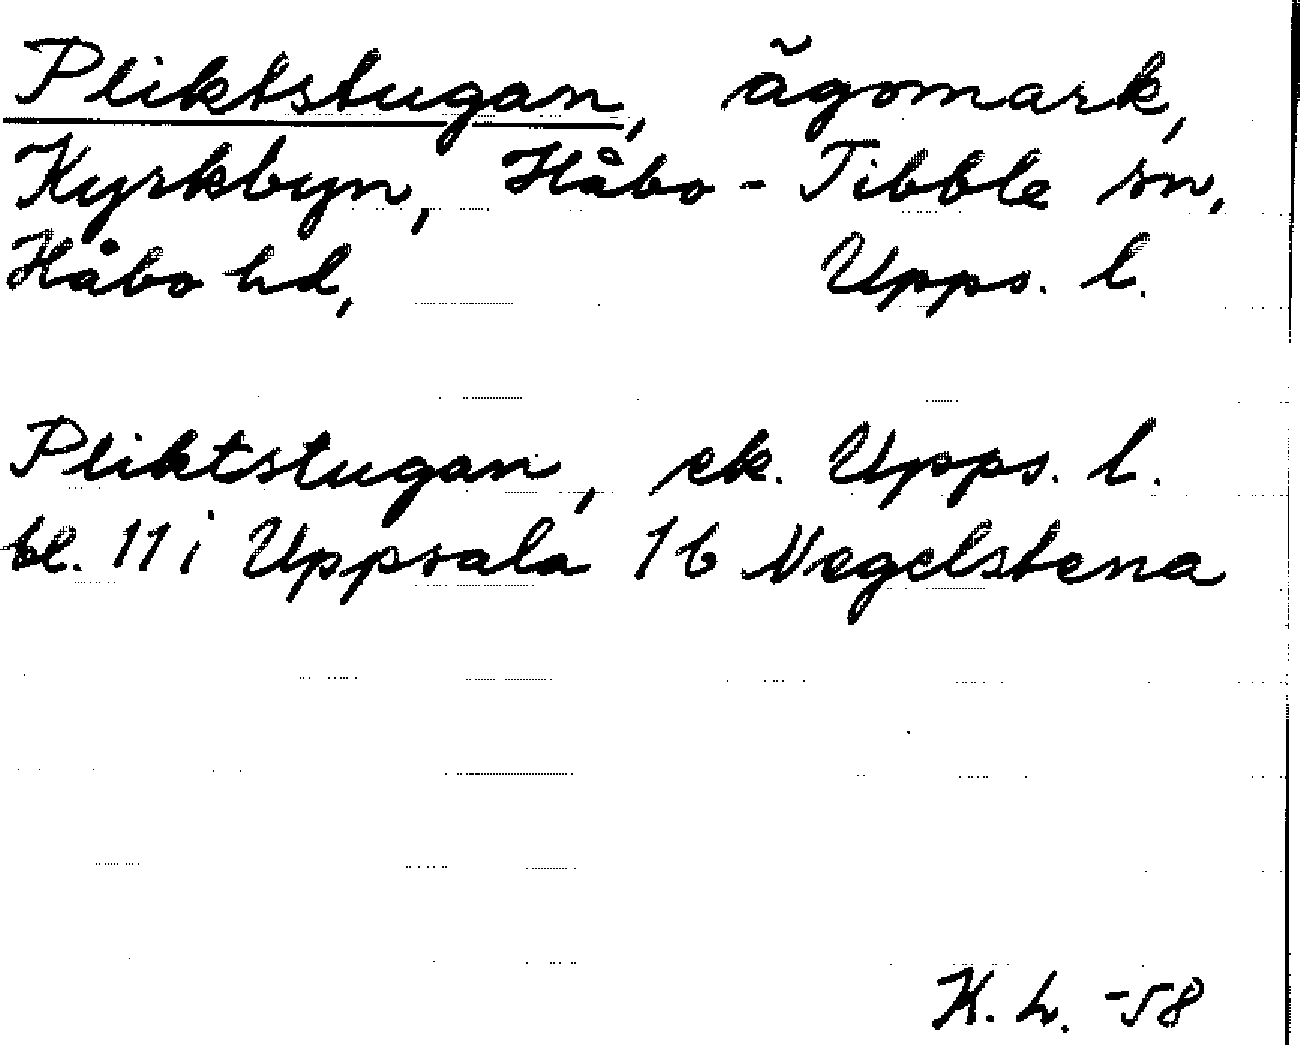 Pliktstugan, ägomark,
Kyrkbyn, Håbo-Tibble sn,
Håbo hd, Upps. l.
Pliktstugan, ek. Upps. l.
bl. 11 i Uppsala 16 Negelstena
K. h. -58